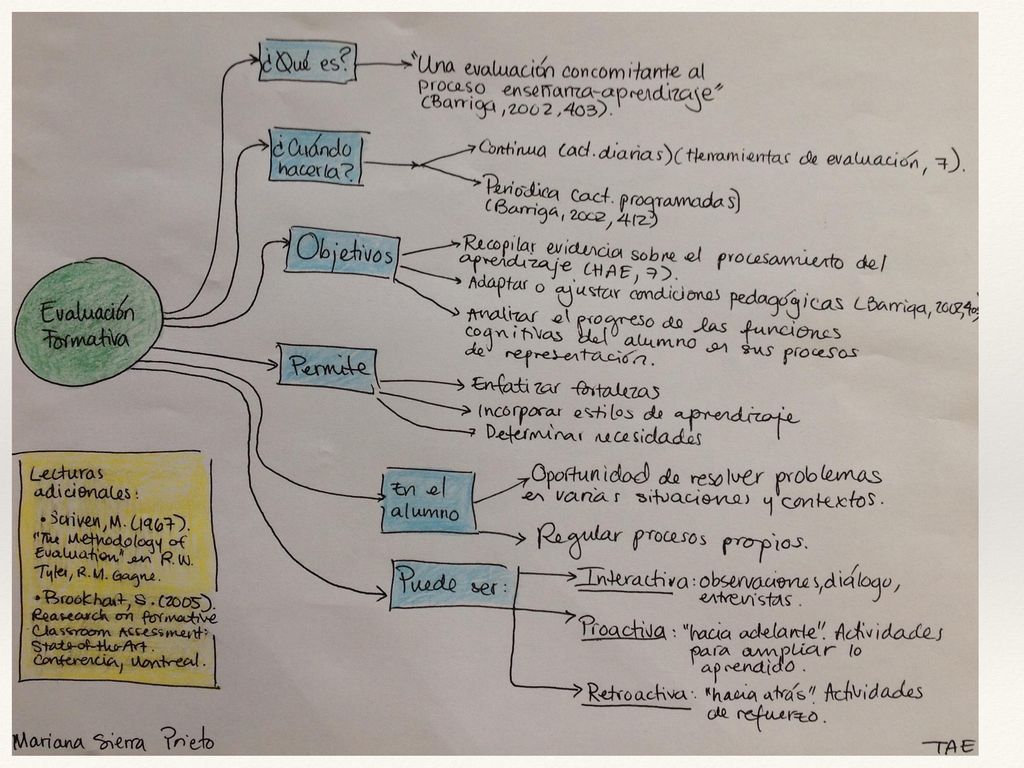 ¿Qué es?
"Una evaluación concomitante al
proceso enseñanza-aprendizaje"
(Barriga, 2002, 403).
¿Cuándo
hacerla?
Continua (act. diarias) (Herramientas de evaluación, 7).
Periódica (act. programadas)
(Barriga, 2002, 412)
Objetivos
Recopilar evidencia sobre el procesamiento del
aprendizaje (HAE, 7).
Adaptar o ajustar condiciones pedagógicas (Barriga, 2002, 40
Analizar el progreso de las funciones
cognitivas del alumno en sus procesos
de representación.
Evaluación
Formativa
Permite
Enfatizar fortalezas
Incorporar estilos de aprendizaje
Determinar necesidades
En el
alumno
Oportunidad de resolver problemas
en varias situaciones y contextos.
Regular procesos propios.
Puede ser:
Interactiva: observaciones, diálogo,
entrevistas.
Proactiva: "hacia adelante". Actividades
para ampliar lo
aprendido.
Retroactiva: "hacia atrás". Actividades
de refuerzo.
Lecturas
adicionales:
• Scriven, M. (1967).
"The Methodology of
Evaluation" en R.W.
Tyler, R.M. Gagne.
• Brookhart, S. (2005).
Reasearch on formative
Classroom Assessment:
State-of-the-Art.
Conferencia, Montreal.
Mariana Sierra Prieto
TAE